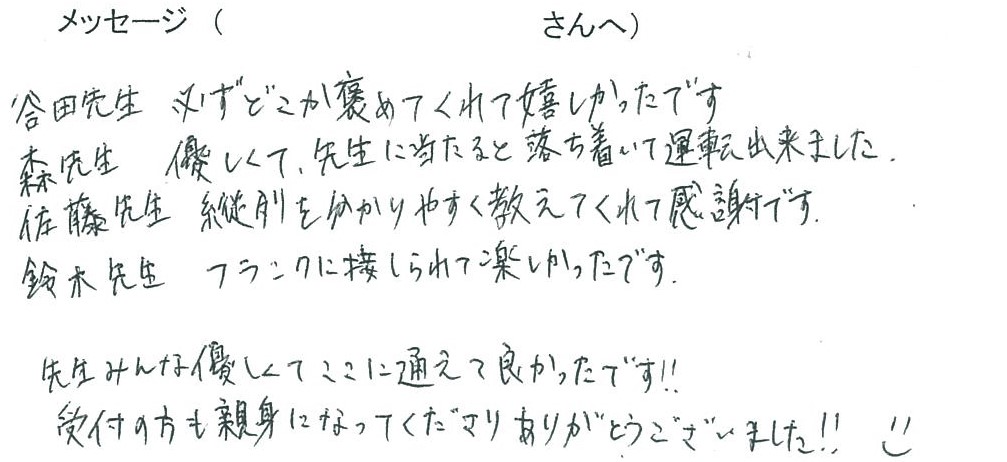 メッセージ( さんへ)
谷田先生 必ずどこか褒めてくれて嬉しかったです
森先生 優しくて、先生に当たると落ち着いて運転出来ました.
佐藤先生 縦列を分かりやすく教えてくれて感謝です.
鈴木先生 フランクに接しられて楽しかったです.
先生みんな優しくてここに通えて良かったです!!
受付の方も親身になってくださりありがとうございました!!